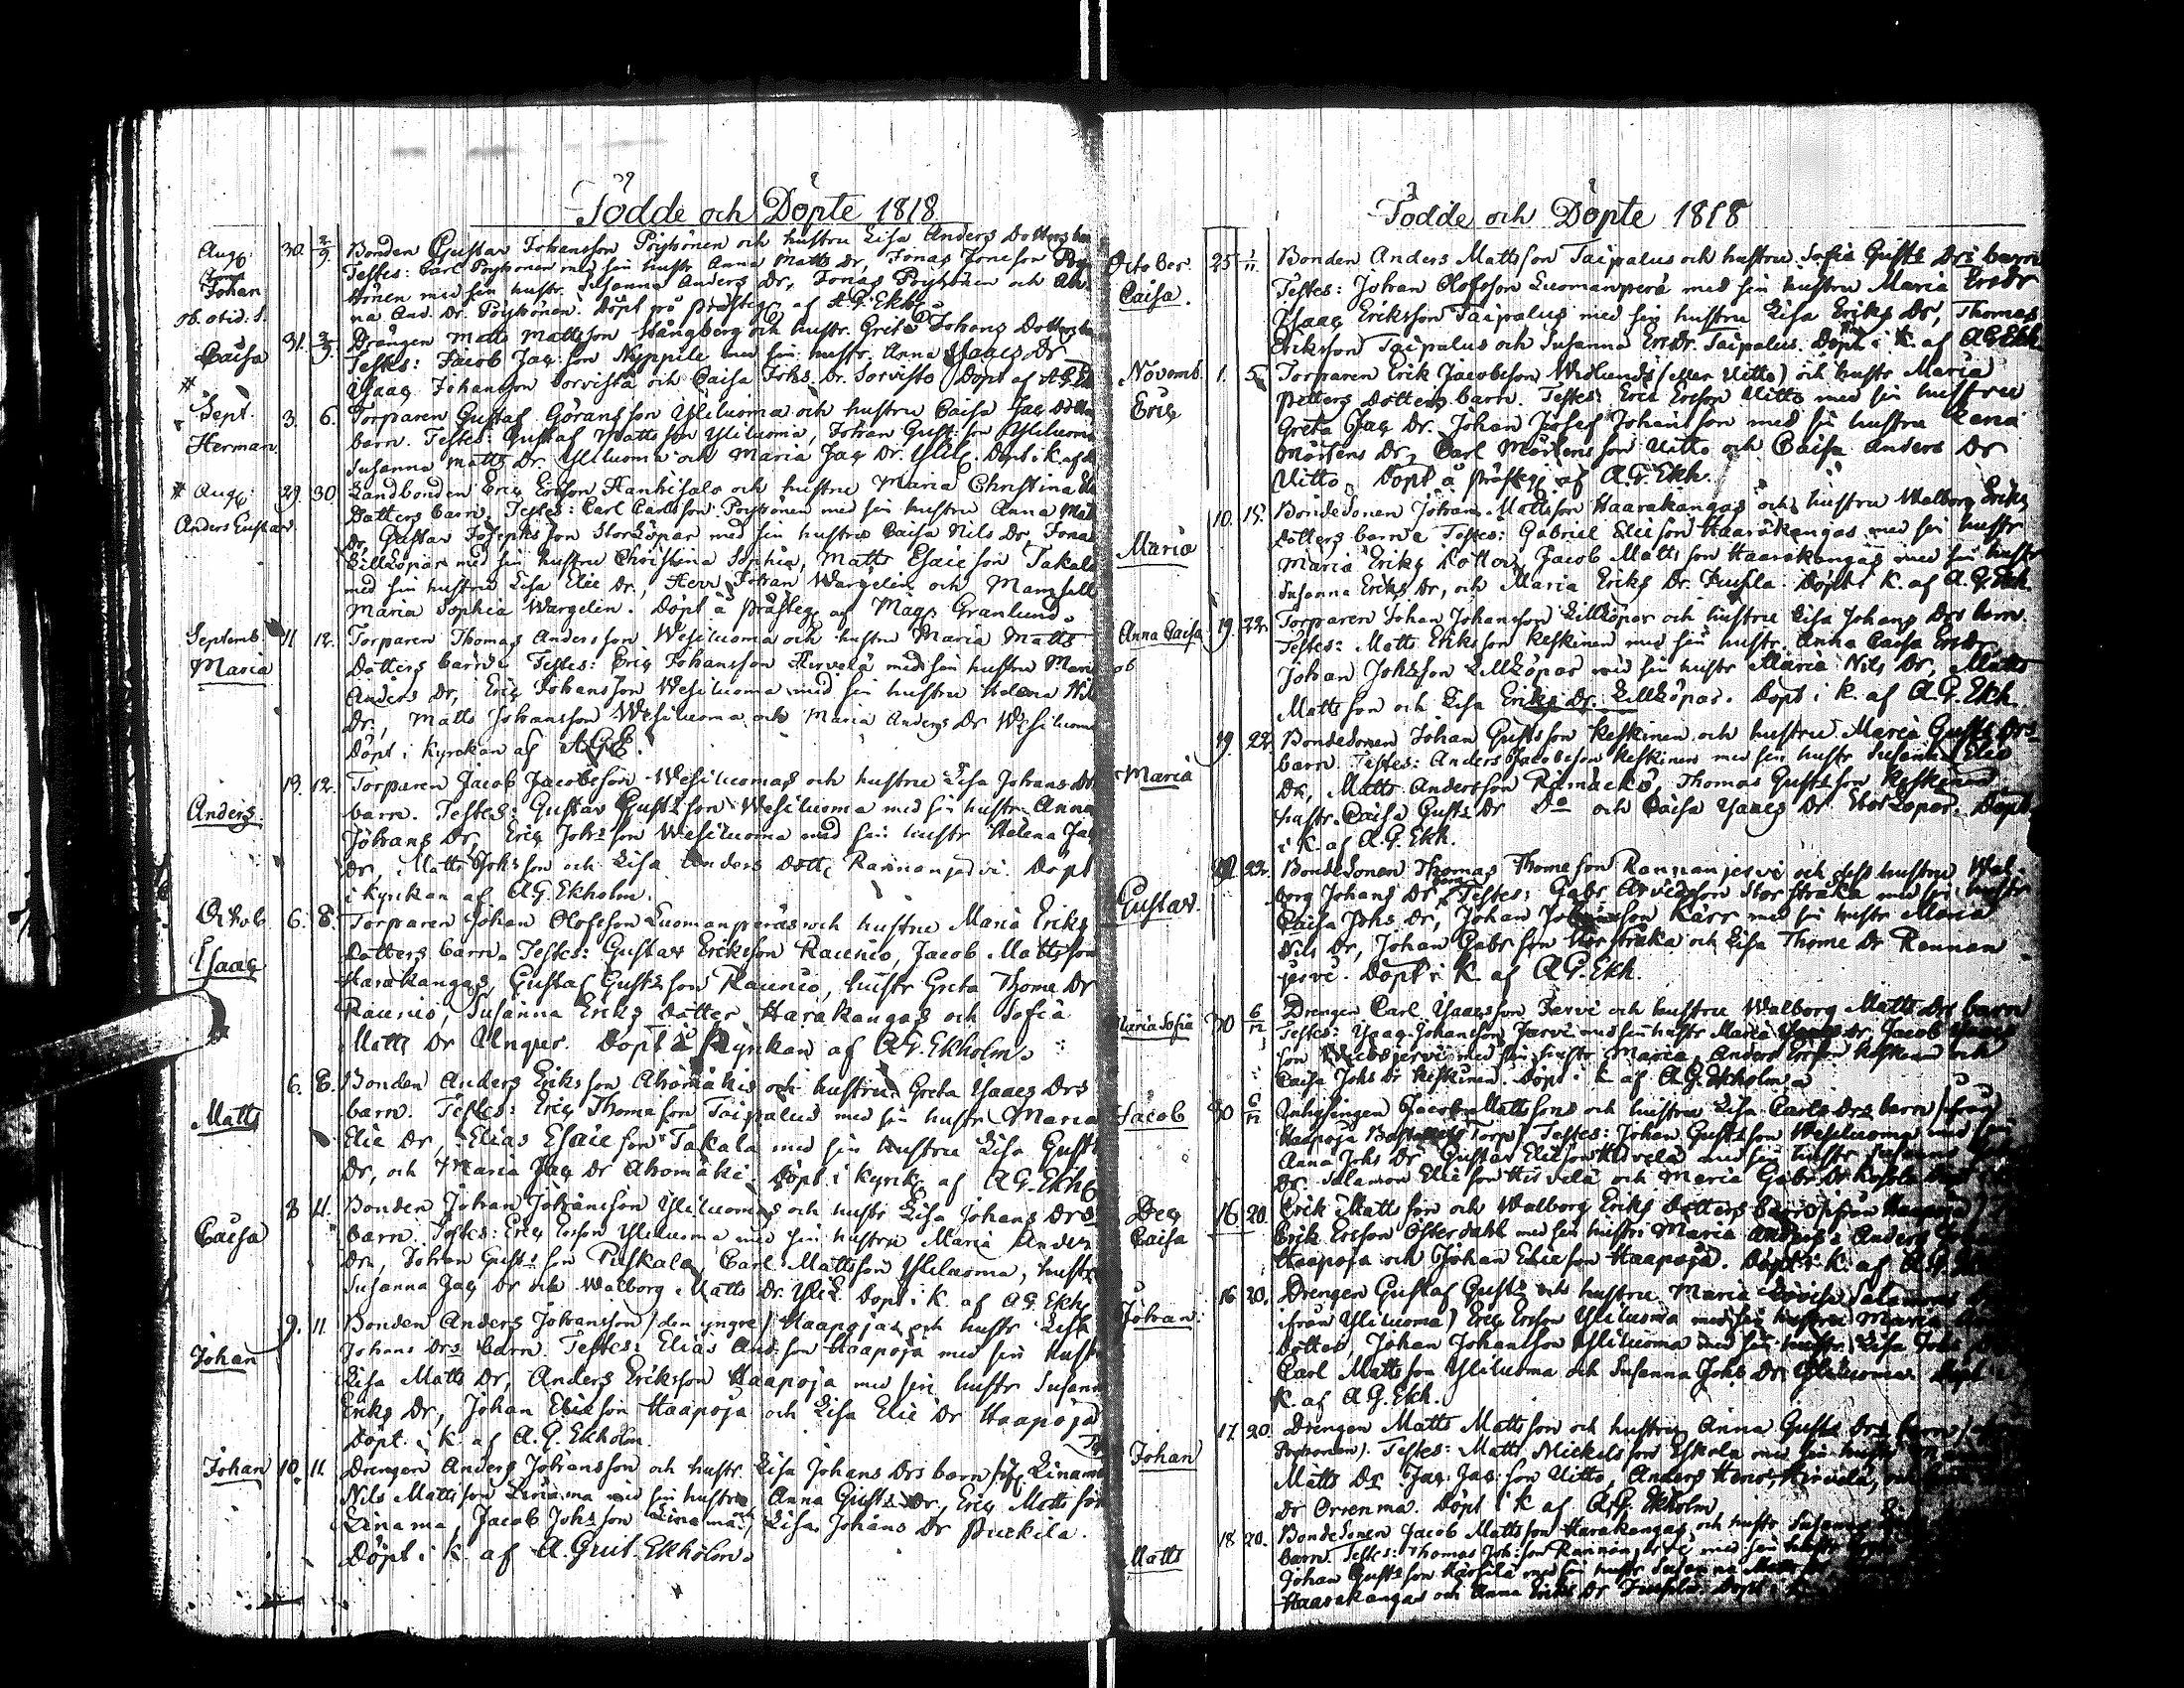 Födde och Döpte 1818
Aug. 30. 2/9. Bonden Gustav Johansson Pöyhönen och hustru Lisa Anders Dotters barn
Johan Testes: Carl Pöyhönen med sin hustr. Anna Matts Dr, Jonas Jonesson Pöy
hönen med sin hustr. Susanna Anders Dr, Jonas Pöyhönen och An
na And. Dr. Pöyhönen. Döpt på prästeg. af A.G. Ekh.
Caisa 31. Drängen Matts Mattsson Stångberg och hustr. Greta Johans Dotters
Testes: Jacob Jac son Nyppile med sin hustr. Anna Isaacs Dr
Isaac Johansson Sorvista och Caisa Johs. Dr. Sorvisto Döpt af A.G. Ek
Sept. 3. 6. Torparen Gustaf Göransson Yliluoma och hustru Caisa Jac Dotters
Herman barn. Testes: Gustaf Mattsson Yliluoma, Johan Gust. son Yliluoma
Susanna Matts Dr. Yliluoma och Maria Jac Dr. Ylil. Döpt i K. af
# Aug. 29. 30. Landbonden Eric Ersson Hanhisalo och hustru Maria Christina
Anders Gustav. Dotters barn. Testes: Carl Carlsson Pöyhönen med sin hustru Anna Matts
Dr, Gustav Josephsson Storköpar med sin hustru Caisa Nils Dr, Jonas
Lillköpar med sin hustru Christina Sophia, Matts Esaiesson Takala
med sin hustru Lisa Elie Dr, Herr Johan Wargelin och Mamsell
Maria Sophia Wargelin. Döpt å prästeg. af Mag. Granlund.
Septemb. 11 12. Torparen Thomas Andersson Wesiluoma och hustru Maria Matts
Maria Dotters barn. Testes: Eric Johansson Hirvelä med sin hustru Maria
Anders Dr, Eric Johansson Wesiluoma med sin hustru Helena Nils
Dr, Matts Johansson Wesiluoma och Maria Anders Dr Wesiluoma
Döpt i Kyrckan af A.G.E.
Anders. 12. Torparen Jacob Jacobsson Wesiluomas och hustru Lisa Johans Dr
barn. Testes: Gustav Gusts son Wesiluoma med sin hustr. Anna
Johans Dr, Eric Johs son Wesiluoma med sin hustr Helena Jac
Dr, Matts Johsson och Lisa Anders Dott. Rannanjervi. Döpt
i kyrckan af A.G. Ekholm.
Octob. 6. 8. Torparen Johan Olofsson Luomanperäs och hustru Maria Eriks
Isaac Dotters barn. Testes: Gustav Eriksson Raunio, Jacob Mattsson
Harakangas, Gustaf Gusts son Raunio, hustr Greta Thome Dr
Raunio, Susanna Eriks Dotter Harakangas och Sofia
Matts Dr Ånger. Döpt i Kyrckan af A.G. Ekholm.
Matts 6. 8. Bonden Anders Eriksson Ahomäkis och hustru Greta Isaacs Drs
barn. Testes: Eric Thomasson Taipalus med sin hustr Maria
Elie Dr, Elias Esaiesson Takala med sin hustru Lisa Gusts
Dr, och Maria Jac Dr Ahomäki. Döpt i kyrck. af A.G. Ekh
Caisa 8 11. Bonden Johan Johansson Yliluomas och hustr Lisa Johans Drs
barn. Testes: Eric Ersson Yliluoma med sin hustru Maria Anders
Dr, Johan Gusts son Puskala, Carl Mattsson Yliluoma, hustr
Susanna Jac Dr och Walborg Matts Dr. Ylil. Döpt i K. af A.G. Ekh
Johan 9. 11. Bonden Anders Johansson /den yngre/ Haapojas och hustr Lisa
Johans Drs barn. Testes: Elias And. son Haapoja med sin hustr
Lisa Matts Dr, Anders Eriksson Haapoja med sin hustr Susanna
Eriks Dr, Johan Eliesson Haapoja och Lisa Elie Dr Haapoja
Döpt i K. af A.G. Ekholm.
Johan 10. 11. Drengen Anders Johansson och hustr. Lisa Johans Drs barn
Nils Mattsson Linama med sin hustru Anna Gusts Dr, Eric Mattsson
Linama, Jacob Johsson Linama och Lisa Johans Dr Purkila.
Döpt i K. af A. Gust. Ekholm.
Födde och Döpte 1818
October. 25 1/11 Bonden Anders Mattsson Taipalus och hustru Sofia Gusts Drs barn
Caisa. Testes: Johan Olofsson Luomanperä med sin hustru Maria Ers Dr
Isaac Eriksson Taipalus med sin hustru Lisa Eriks Dr, Thomas
Eriksson Taipalus och Susanna Ers Dr. Taipalus. Döpt i K. af A.G. Ekh.
Novemb. 1. 5. Torparen Erik Jacobsson Widlunds (eller Uitto) och hustr Maria
Eric Petters Dotters barn. Testes: Eric Ersson Uitto med sin hustru
Greta Jac Dr. Johan Josef Johansson med sin hustru Lena
Mårtens Dr, Carl Mårtensson Uitto och Caisa Anders Dr
Uitto. Döpt å prästeg. af A.G. Ekh.
Maria 10. 15. Bondesonen Johan Mattsson Haarakangas och hustru Walborg Eriks
Dotters barn. Testes: Gabriel Eliesson Haarakangas med sin hustr
Maria Eriks Dotter, Jacob Mattsson Haarakangas med sin hustr
Susanna Eriks Dr, och Maria Eriks Dr. Jussila. Döpt i K. af A.G. Ekh.
Anna Caisa 19. 22. Torparen Johan Johansson Lillköpar och hustru Lisa Johans Drs barn
ob Testes: Matts Eriksson Keskinen med sin hustr. Anna Caisa Ers Dr
Johan Johsson Lillköpar med sin hustr Maria Nils Dr, Matts
Mattsson och Lisa Eriks Dr. Lillköpar. Döpt i K. af A.G. Ekh.
Maria 19. 22. Bondesonen Johan Gustsson Keskinen och hustru Maria Gusts Drs
barn. Testes: Anders Jacobsson Keskinen med sin hustr Susanna Elie
Dr, Matts Andersson Rämäckö, Thomas Gusts son Keskinen
hustr. Caisa Gusts Dr Do och Caisa Isaacs Dr Storköpar. Döpt
i K. af A.G. Ekh.
Gustav. 22. Bondesonen Thomas Thomeson Rannanjervi och dess hustru Wal
borg Johans Dr Testes: Gabr Arvidsson Stor Stråka med sin hustr
Caisa Johs Dr, Johan Johansson Kärr med sin hustr Maria
Nils Dr, Johan Gabr son Storstråka och Lisa Thome Dr Rannan
jervi. Döpt i K. af A.G. Ekh.
Maria Sofia 30 6/12 Drengen Carl Isaacsson Jervi och hustru Walborg Matts Drs barn
Testes: Isaac Johansson Jervi med sin hustr Maria Isaacs Dr, Jacob Isaacs
son med sin hustr Maria, Anders Ersson Keskinen och
Caisa Johs Dr Keskinen. Döpt i K af A.G. Ekholm
Jacob 30 6/12 Inhysingen Jacob Mattssons och hustru Lisa Carls Drs barn (från
Haapoja Torp). Testes: Johan Gusts son Wesiluoma med sin
Anna Johs Dr Gustav Eliesson Hirvelä med sin hustr Susanna
Dr. Salamon Eliesson Hirvelä och Maria Gabr. Dr
Dec 16 20. Erik Mattsson och Walborg Eriks Dotters barn (ifrån Haapoja)
Caisa Erik Ersson Österdahl med sin hustr Maria Anders
Haapoja och Johan Eliesson Haapoja. Döpt i K. af A.G.
Johan 16 20. Drengen Gustaf Gusts och hustru Maria Lovisa Salamons
ifrån Yliluoma) Eric Ersson Yliluoma med sin hustru Maria
Dotter, Johan Johansson Yliluoma med sin hustr. Lisa Johs
Carl Mattsson Yliluoma och Susanna Johs Dr Yliluoma. Döpt i
K. af A.G. Ekh.
Johan 17. 20. Drengen Matts Mattsson och hustru Anna Gusts Drs barn
Pöyhönen). Testes: Matts Mickelsson Eskola med sin hustr
Matts Dr Jac. Jac. son Uitto, Anders Hirvelä,
Dr Orrenma. Döpt i K af A.G. Ekholm
Matts 18 20. Bondesonen Jacob Mattsson Harakangas och hustr Susanna
barn. Testes: Thomas Joh. son Rannanjervi med sin hustr
Johan Gusts son Kärsilä med sin hustr Susanna Matts
Haarakangas och Anna Eriks Dr Jussila. Döpt